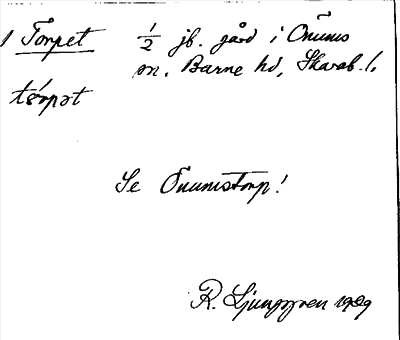 1 Torpet 1/2 jb. gård i Önums
sn. Barne hd, Skarab. l.
tǫrpət
Se Önumstorp!
R. Ljunggren 1929